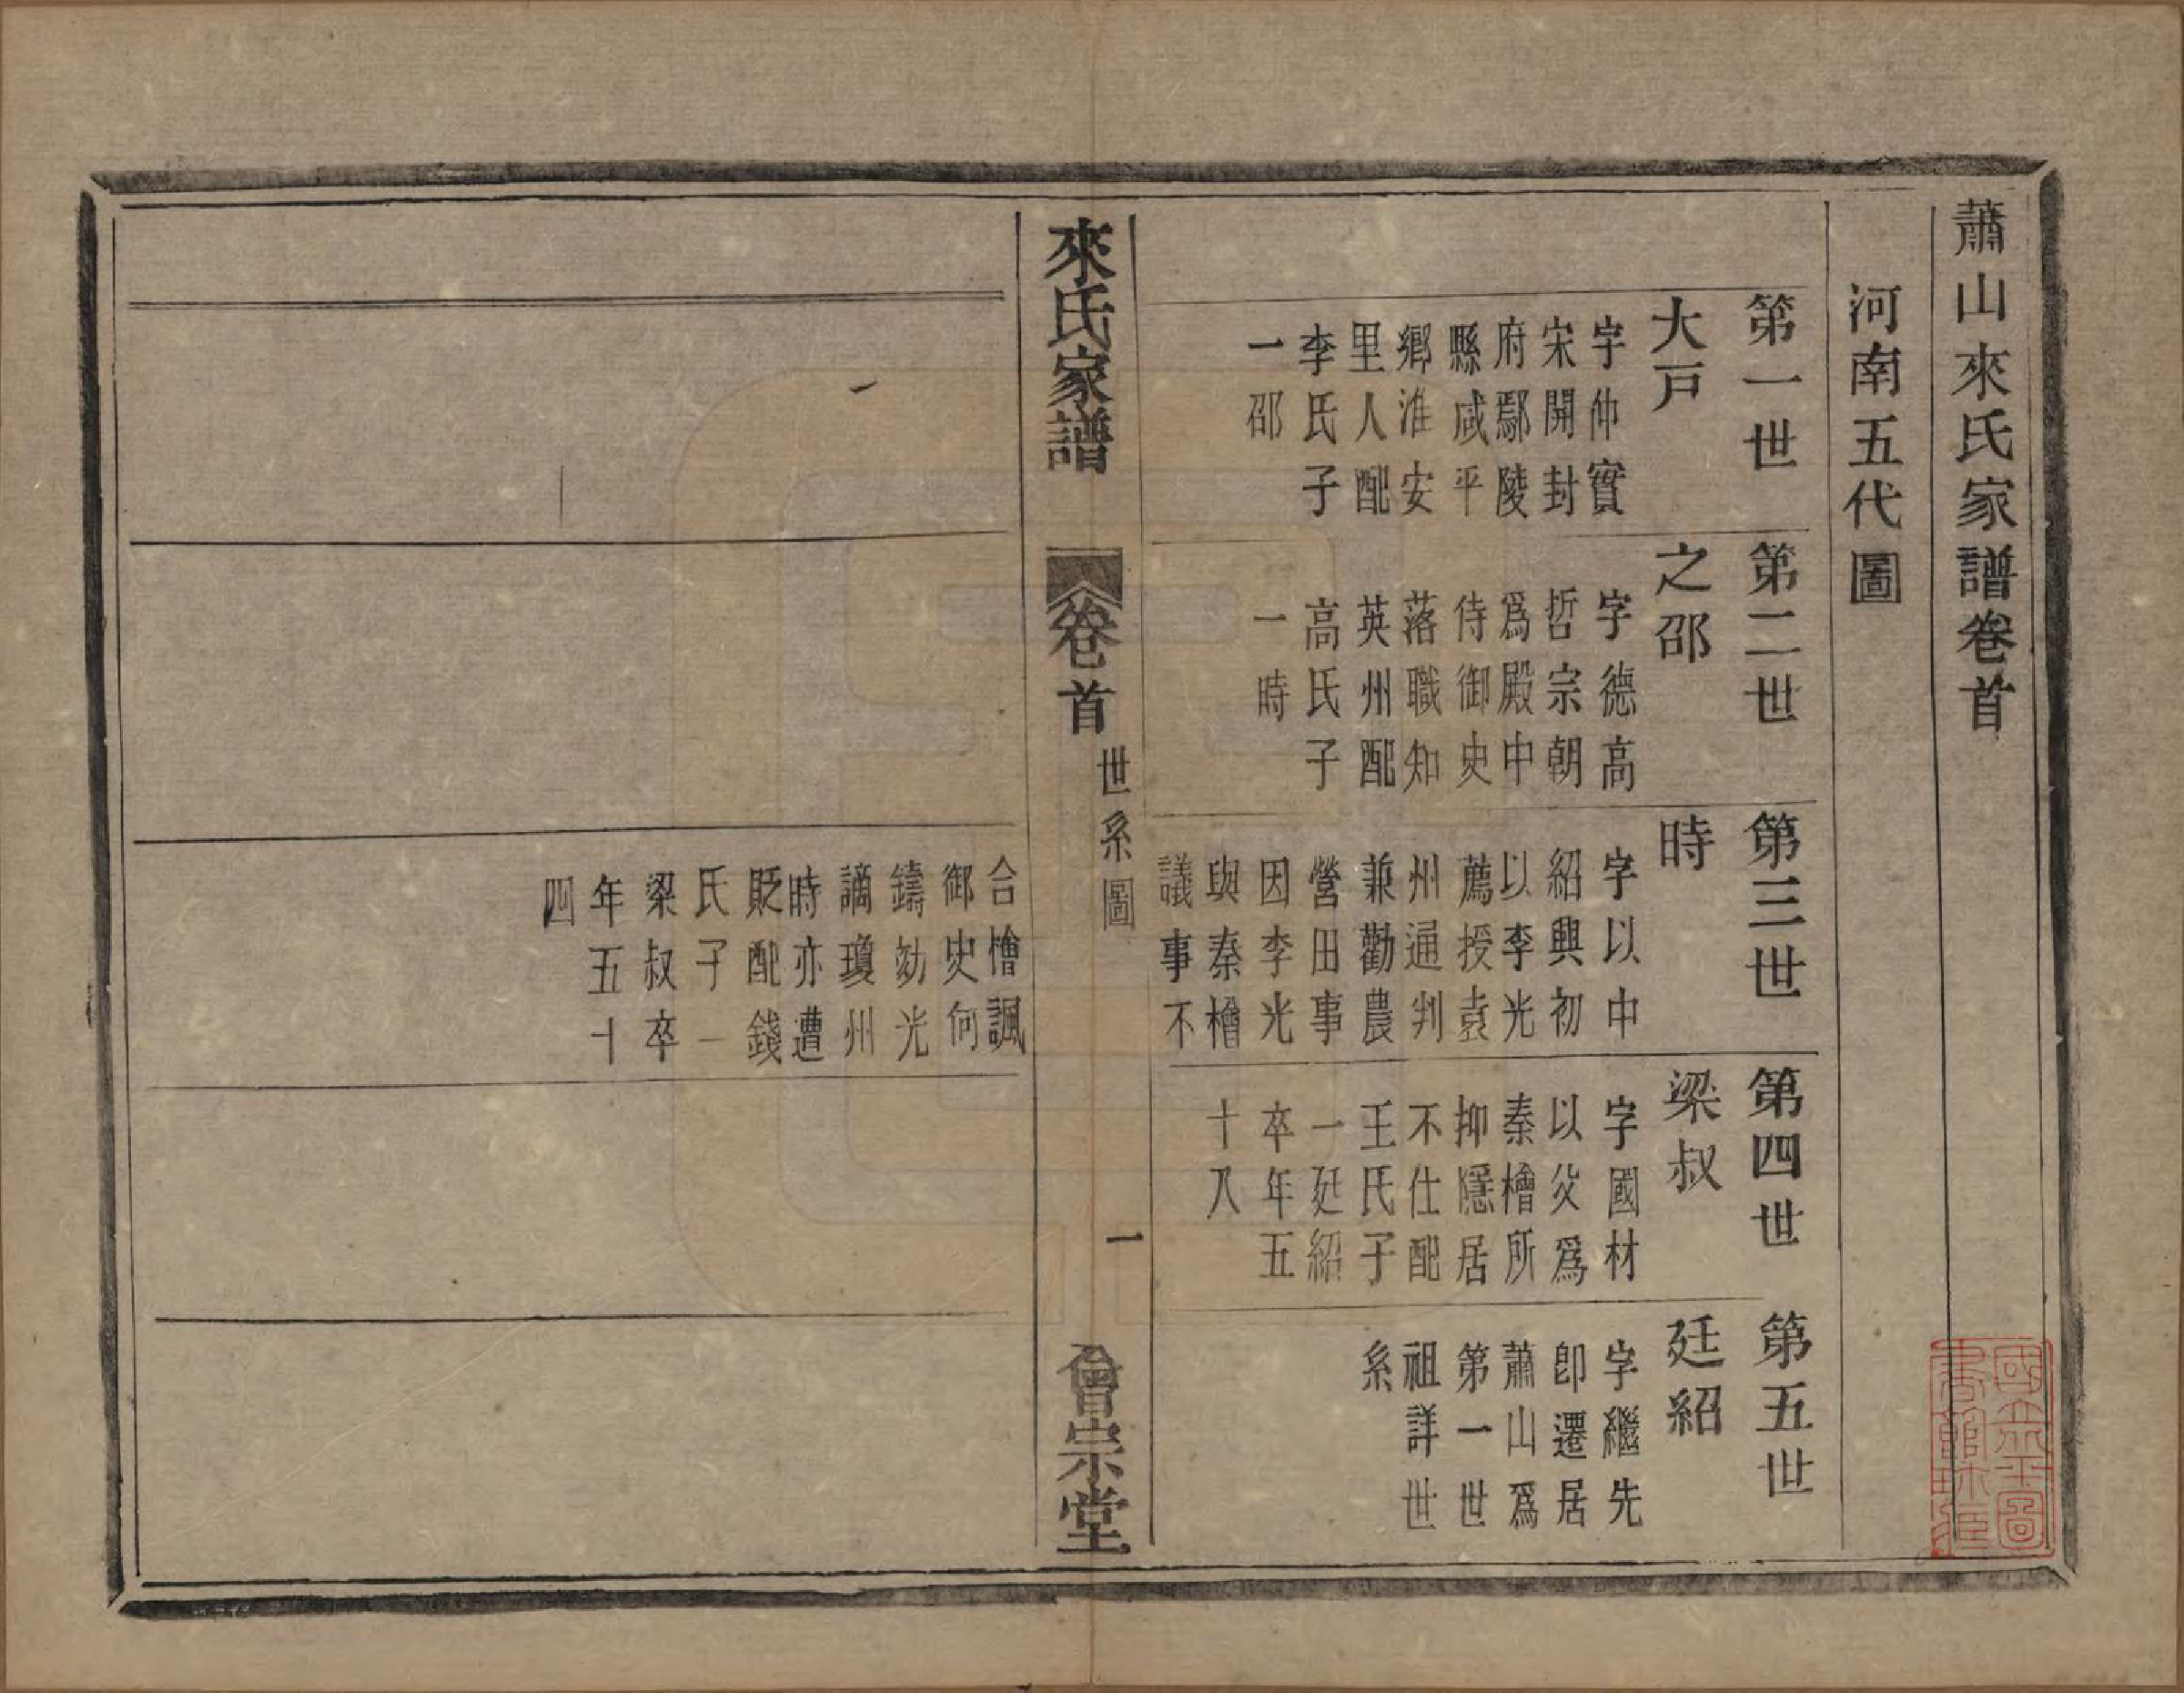 蕭山來氏家譜卷首
河南五代圖
第一世
大戸
字仲實
宋開封
府鄢陵
縣咸平
鄉淮安
里人配
李氏子
一邵
第二世
之邵
字德高
哲宗朝
爲殿中
侍御史
落職知
英州配
高氏子
一時
第三世
時
字以中
紹興初
以李光
薦授袁
州通判
兼勸農
營田事
因李光
與秦檜
議事不
合檜諷
御史何
鑄劾光
謫瓊州
時亦遭
貶配錢
氏子一
梁叔卒
年五十
四
第四世
梁叔
字國材
以父爲
秦檜所
抑隱居
不仕配
王氏子
一廷紹
卒年五
十八
第五世
廷紹
字繼先
卽遷居
蕭山爲
第一世
祖詳世
系
來氏家譜
卷首
世系圖
一
會宗堂
國立北平圖
書館珍藏